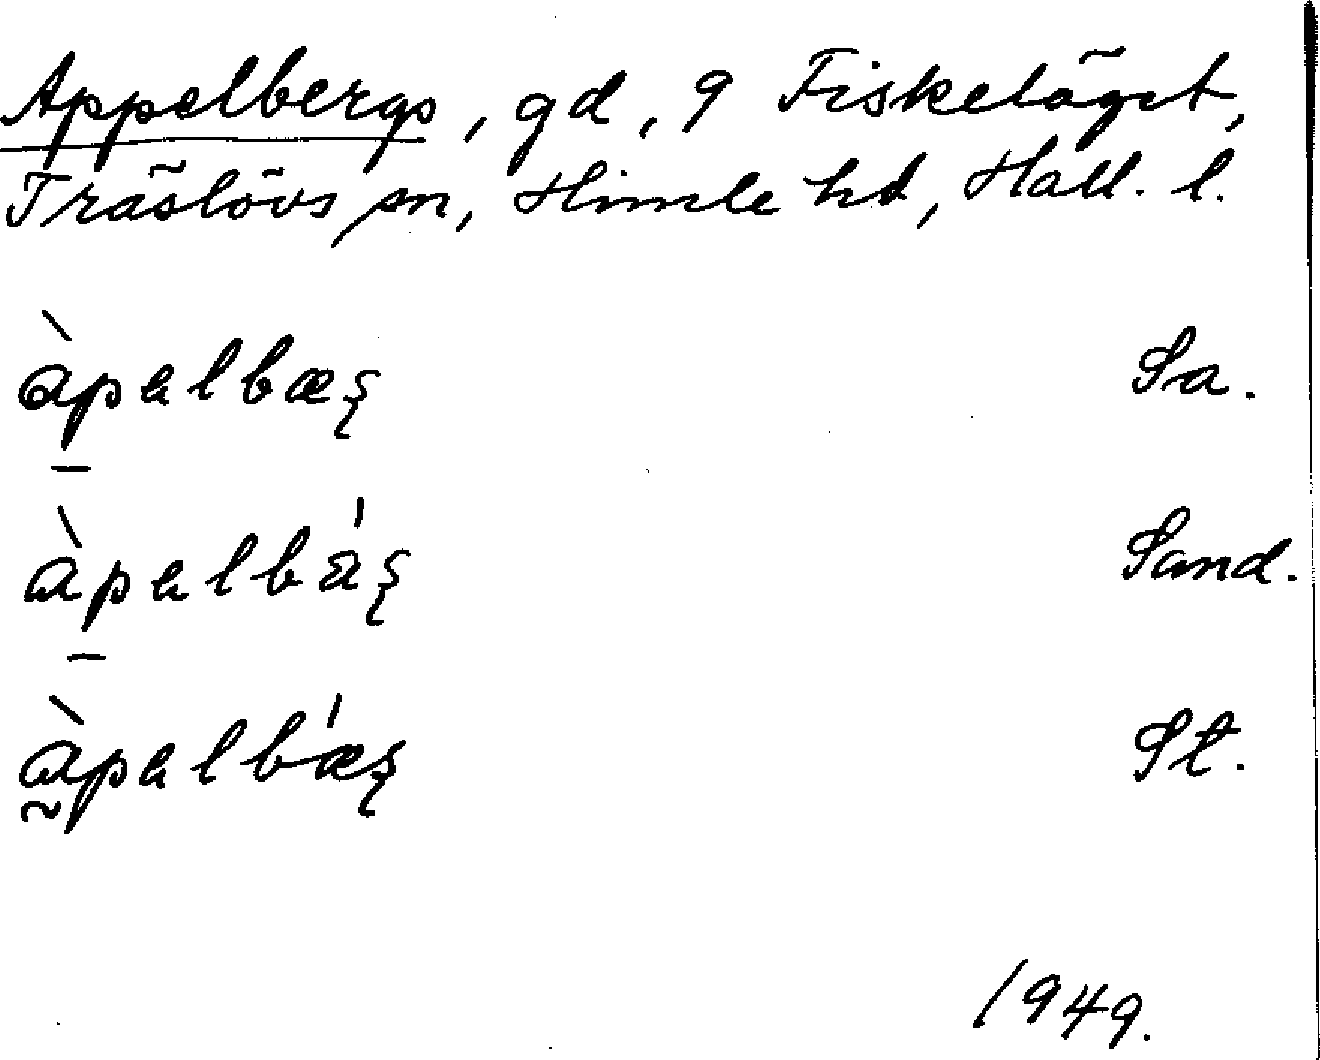 Appelbergs, gd, 9 Fiskeläget,
Träslövs sn, Himle hd, Hall. l.
àpalbæş Sa.
àpalbá̈ş Sand.
àpalbǽş St.
1949.